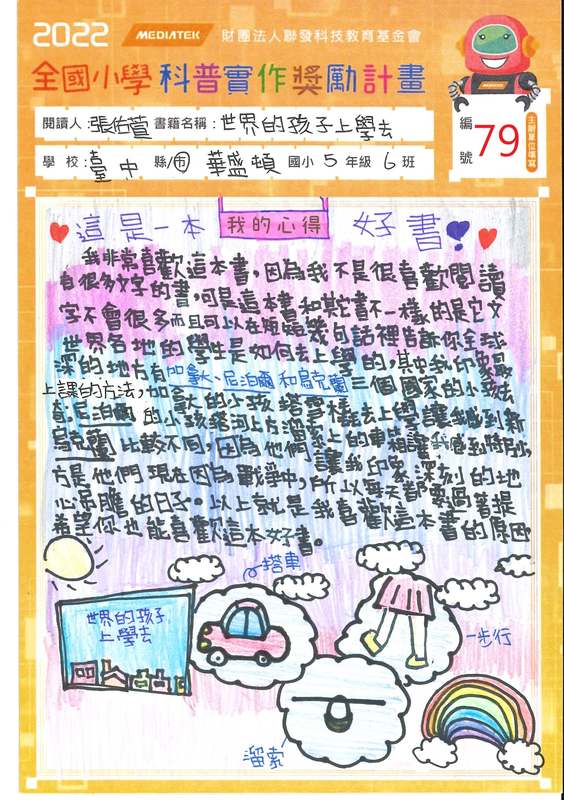 2022 MEDIATEK 財團法人聯發科技教育基金會
全國小學科普實作獎勵計畫
MEDIATEK
閱讀人:張佑萱 書籍名稱:世界的孩子上學去
學 校:臺中 縣/市 華盛頓 國小 5 年級 6 班
編號 79 主辦單位填寫
這是一本 我的心得 好書!
我非常喜歡這本書,因為我不是很喜歡閱讀
有很多文字的書,可是這本書和其它書不一樣的是它文
字不會很多而且可以在短短幾句話裡告訴你全球
世界各地的學生是如何去上學的,其中我印象最
深的地方有加拿大、尼泊爾和烏克蘭三個國家的小孩去
上課的方法,加拿大的小孩搭雪橇去上學讓我感到新
奇;尼泊爾的小孩搭河上方溜索上的車箱讓我感到特別,
烏克蘭比較不同,因為他們讓我印象深刻的地
方是他們現在因為戰爭中,所以每天都要過著提
心吊膽的日子。以上就是我喜歡這本書的原因
希望你也能喜歡這本好書。
搭車
世界的孩子
上學去
步行
溜索